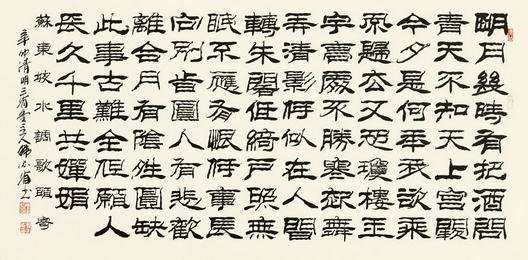 明月幾時有把酒問
青天不知天上宮闕
今夕是何年我欲乘
風歸去又恐瓊樓玉
宇高處不勝寒起舞
弄清影何似在人間
轉朱閣低綺戶照無
眠不應有恨何事長
向別旹圓人有悲歡
離合月有陰姓圓缺
此事古難全但願人
長久千里共嬋娟
蘇東坡水調歌頭
辛卯清明三省堂主